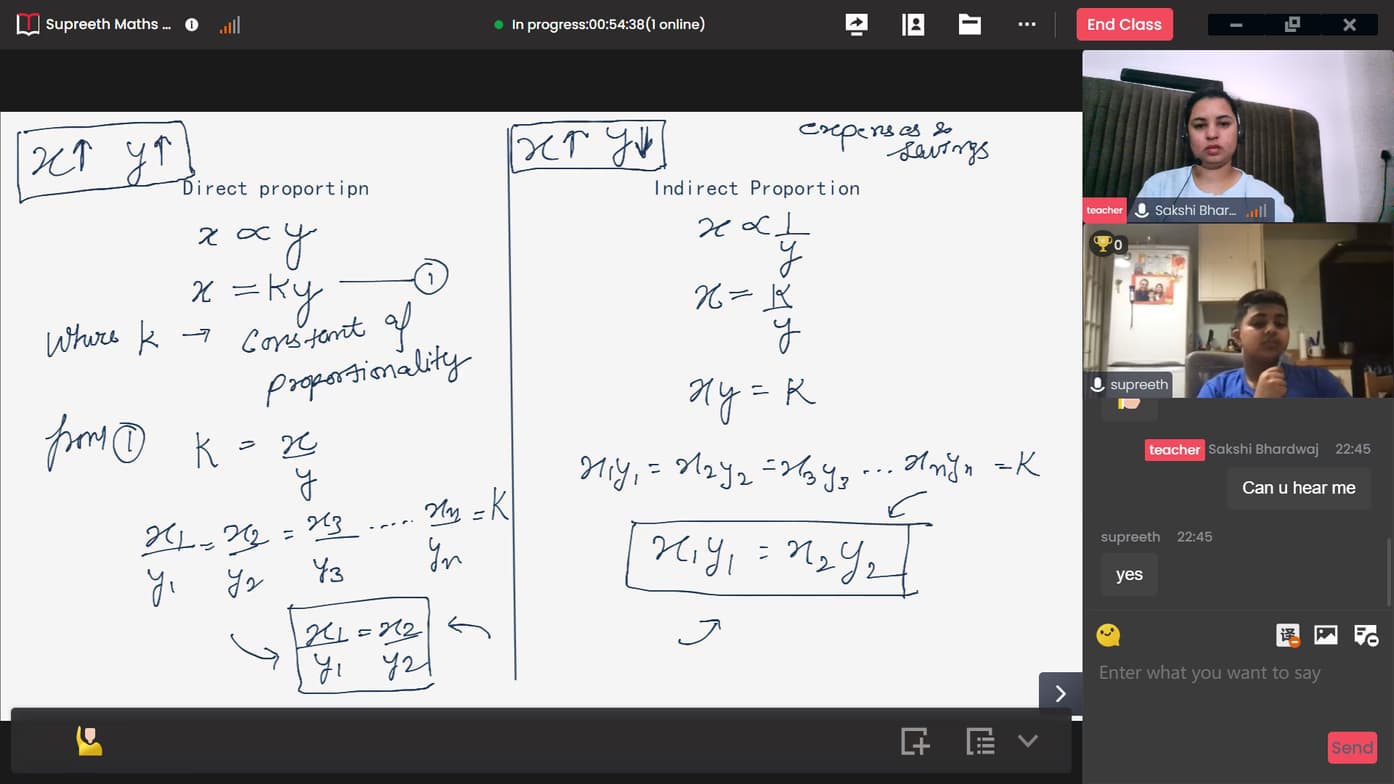 Supreeth Maths ...
In progress:00:54:38(1 online)
End Class
x↑ y↑
Direct proportipn
x ∝ y
x = Ky — ①
Where k → Constant of
proportionality
from ① K = x/y
x₁/y₁ = x₂/y₂ = x₃/y₃ .... xn/yn = K
x₁/y₁ = x₂/y₂
x↑ y↓
expenses &
savings
Indirect Proportion
x ∝ 1/y
x = K/y
xy = K
x₁y₁ = x₂y₂ = x₃y₃ ... xnyn = K
x₁y₁ = x₂y₂
teacher Sakshi Bhar...
0
supreeth
teacher Sakshi Bhardwaj 22:45
Can u hear me
supreeth 22:45
yes
译
Enter what you want to say
Send